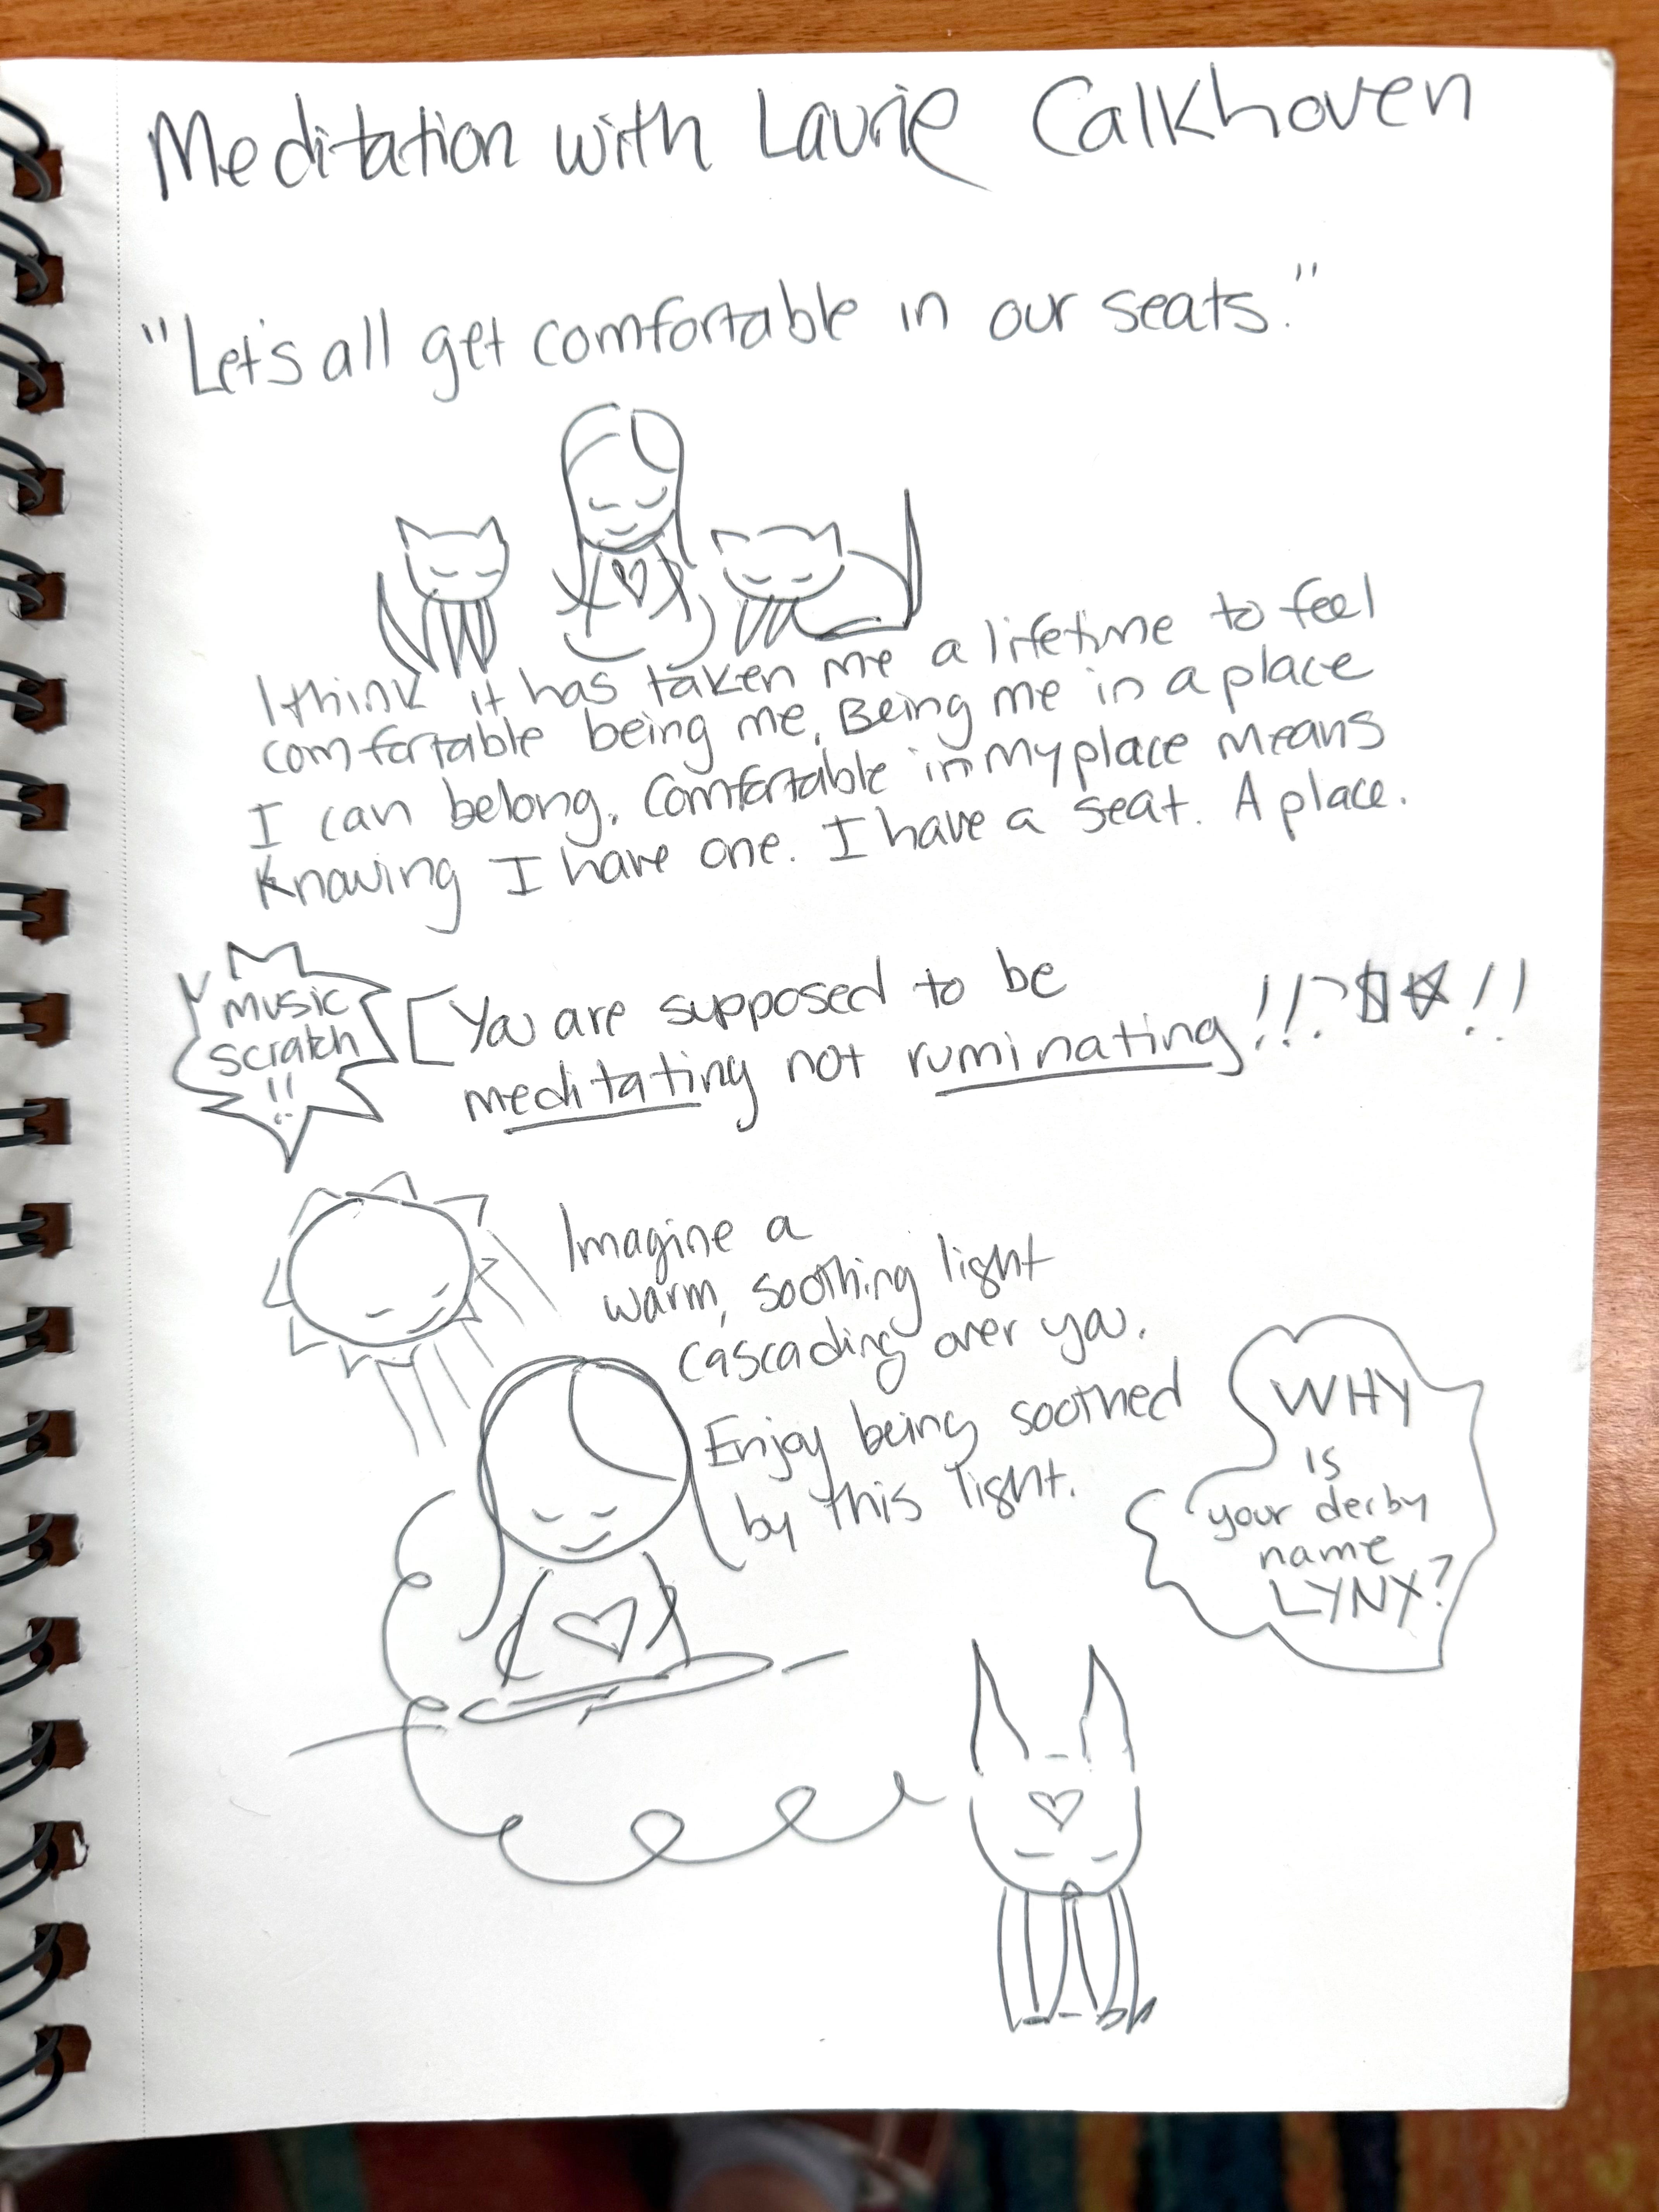 Meditation with Laurie Calkhoven
"Let's all get comfortable in our seats."
I think it has taken me a lifetime to feel
comfortable being me. Being me in a place
I can belong. Comfortable in my place means
Knowing I have one. I have a seat. A place.
MUSIC
Scratch
!!
[You are supposed to be
meditating not ruminating!!?
!!
Imagine a
warm, soothing light
cascading over you.
Enjoy being soothed
by this light.
WHY
is
your derby
name
LYNX?